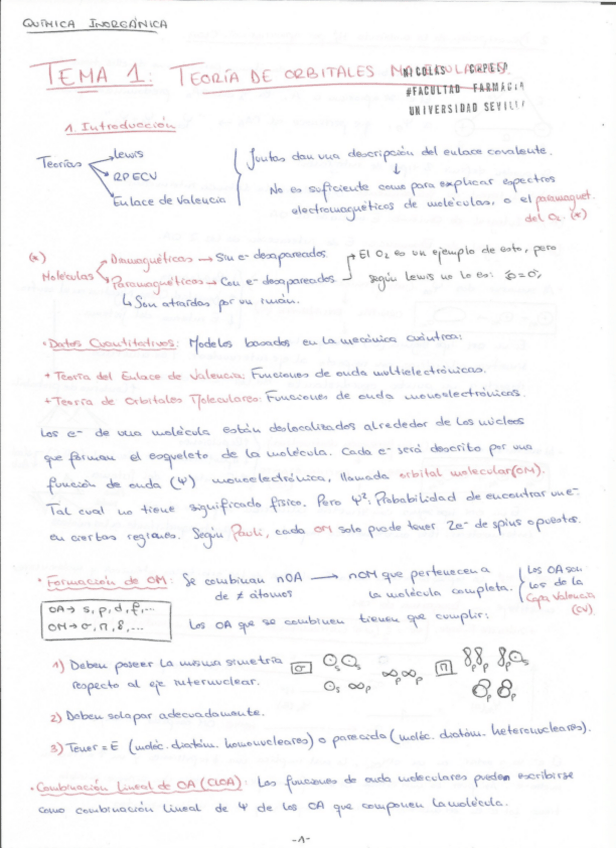 QUÍMICA INORGÁNICA
TEMA 1: TEORÍA DE ORBITALES MOLECULARES.
NICOLAS CRPIEP
#FACULTAD FARMACIA
UNIVERSIDAD SEVILLA
1. Introducción
Teorías
Lewis
RPECV
Enlace de Valencia
Juntas dan una descripción del enlace covalente.
↓
No es suficiente como para explicar espectros
electromagnéticos de moléculas, o el paramagnet.
del O₂. (*)
(*)
Moléculas
Diamagnéticas → Sin e⁻ desapareados
Paramagnéticas → Con e⁻ desapareados
↳ Son atraídas por un imán.
El O₂ es un ejemplo de esto, pero
según Lewis no lo es:
• Datos Cuantitativos: Modelos basados en la mecánica cuántica:
+ Teoría del Enlace de Valencia: Funciones de onda multielectrónicas.
+ Teoría de Orbitales Moleculares: Funciones de onda monoelectrónicas.
Los e⁻ de una molécula están deslocalizados alrededor de los núcleos
que forman el esqueleto de la molécula. Cada e⁻ será descrito por una
función de onda (Ψ) monoelectrónica, llamada orbital molecular (OM).
Tal cual no tiene significado físico. Pero Ψ²: Probabilidad de encontrar un e⁻
en ciertas regiones. Según Pauli, cada OM solo puede tener 2e⁻ de spins opuestos.
• Formación de OM: Se combinan nOA → nOM que pertenecen a
de ≠ átomos la molécula completa.
Los OA son
los de la
Capa Valencia
(CV)
OA → s, p, d, f, ...
OM → σ, π, δ, ...
Los OA que se combinen tienen que cumplir:
1) Deben poseer la misma simetría
respecto al eje internuclear.
σ s s s p p p π p p p p
2) Deben solapar adecuadamente.
3) Tener = E (moléc. diatóm. homonucleares) o parecida (moléc. diatóm. heteronucleares).
• Combinación Lineal de OA (CLOA): Las funciones de onda moleculares pueden escribirse
como combinación lineal de Ψ de los OA que componen la molécula.
-1-